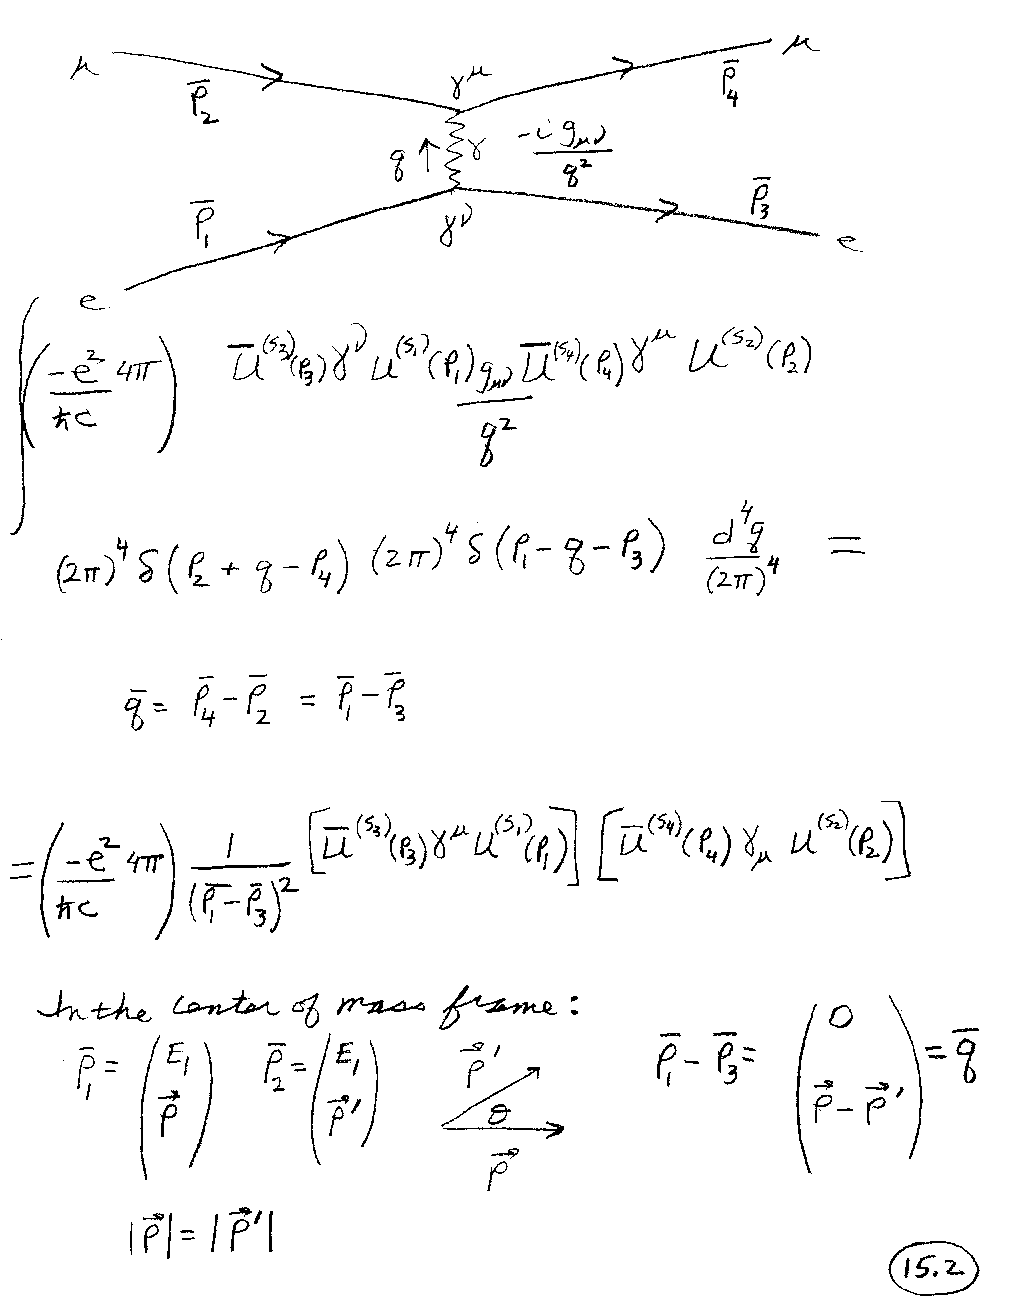 μ P̄₂ γ^μ P̄₄ μ
q ↑ γ -i g_{μν} / q²
e P̄₁ γ^ν P̄₃ e
∫ (-e²/ħc 4π) ū^{(s₃)}(P₃) γ^ν u^{(s₁)}(P₁) g_{μν}/q² ū^{(s₄)}(P₄) γ^μ u^{(s₂)}(P₂)
(2π)⁴ δ(P₂ + q - P₄) (2π)⁴ δ(P₁ - q - P₃) d⁴q/(2π)⁴ =
q̄ = P̄₄ - P̄₂ = P̄₁ - P̄₃
= (-e²/ħc 4π) 1/(P̄₁ - P̄₃)² [ū^{(s₃)}(P₃) γ^μ u^{(s₁)}(P₁)] [ū^{(s₄)}(P₄) γ_μ u^{(s₂)}(P₂)]
In the center of mass frame:
P̄₁ = (E₁, p⃗) P̄₂ = (E₁, p⃗') p⃗' θ p⃗ P̄₁ - P̄₃ = (0, p⃗ - p⃗') = q̄
|p⃗| = |p⃗'|
15.2